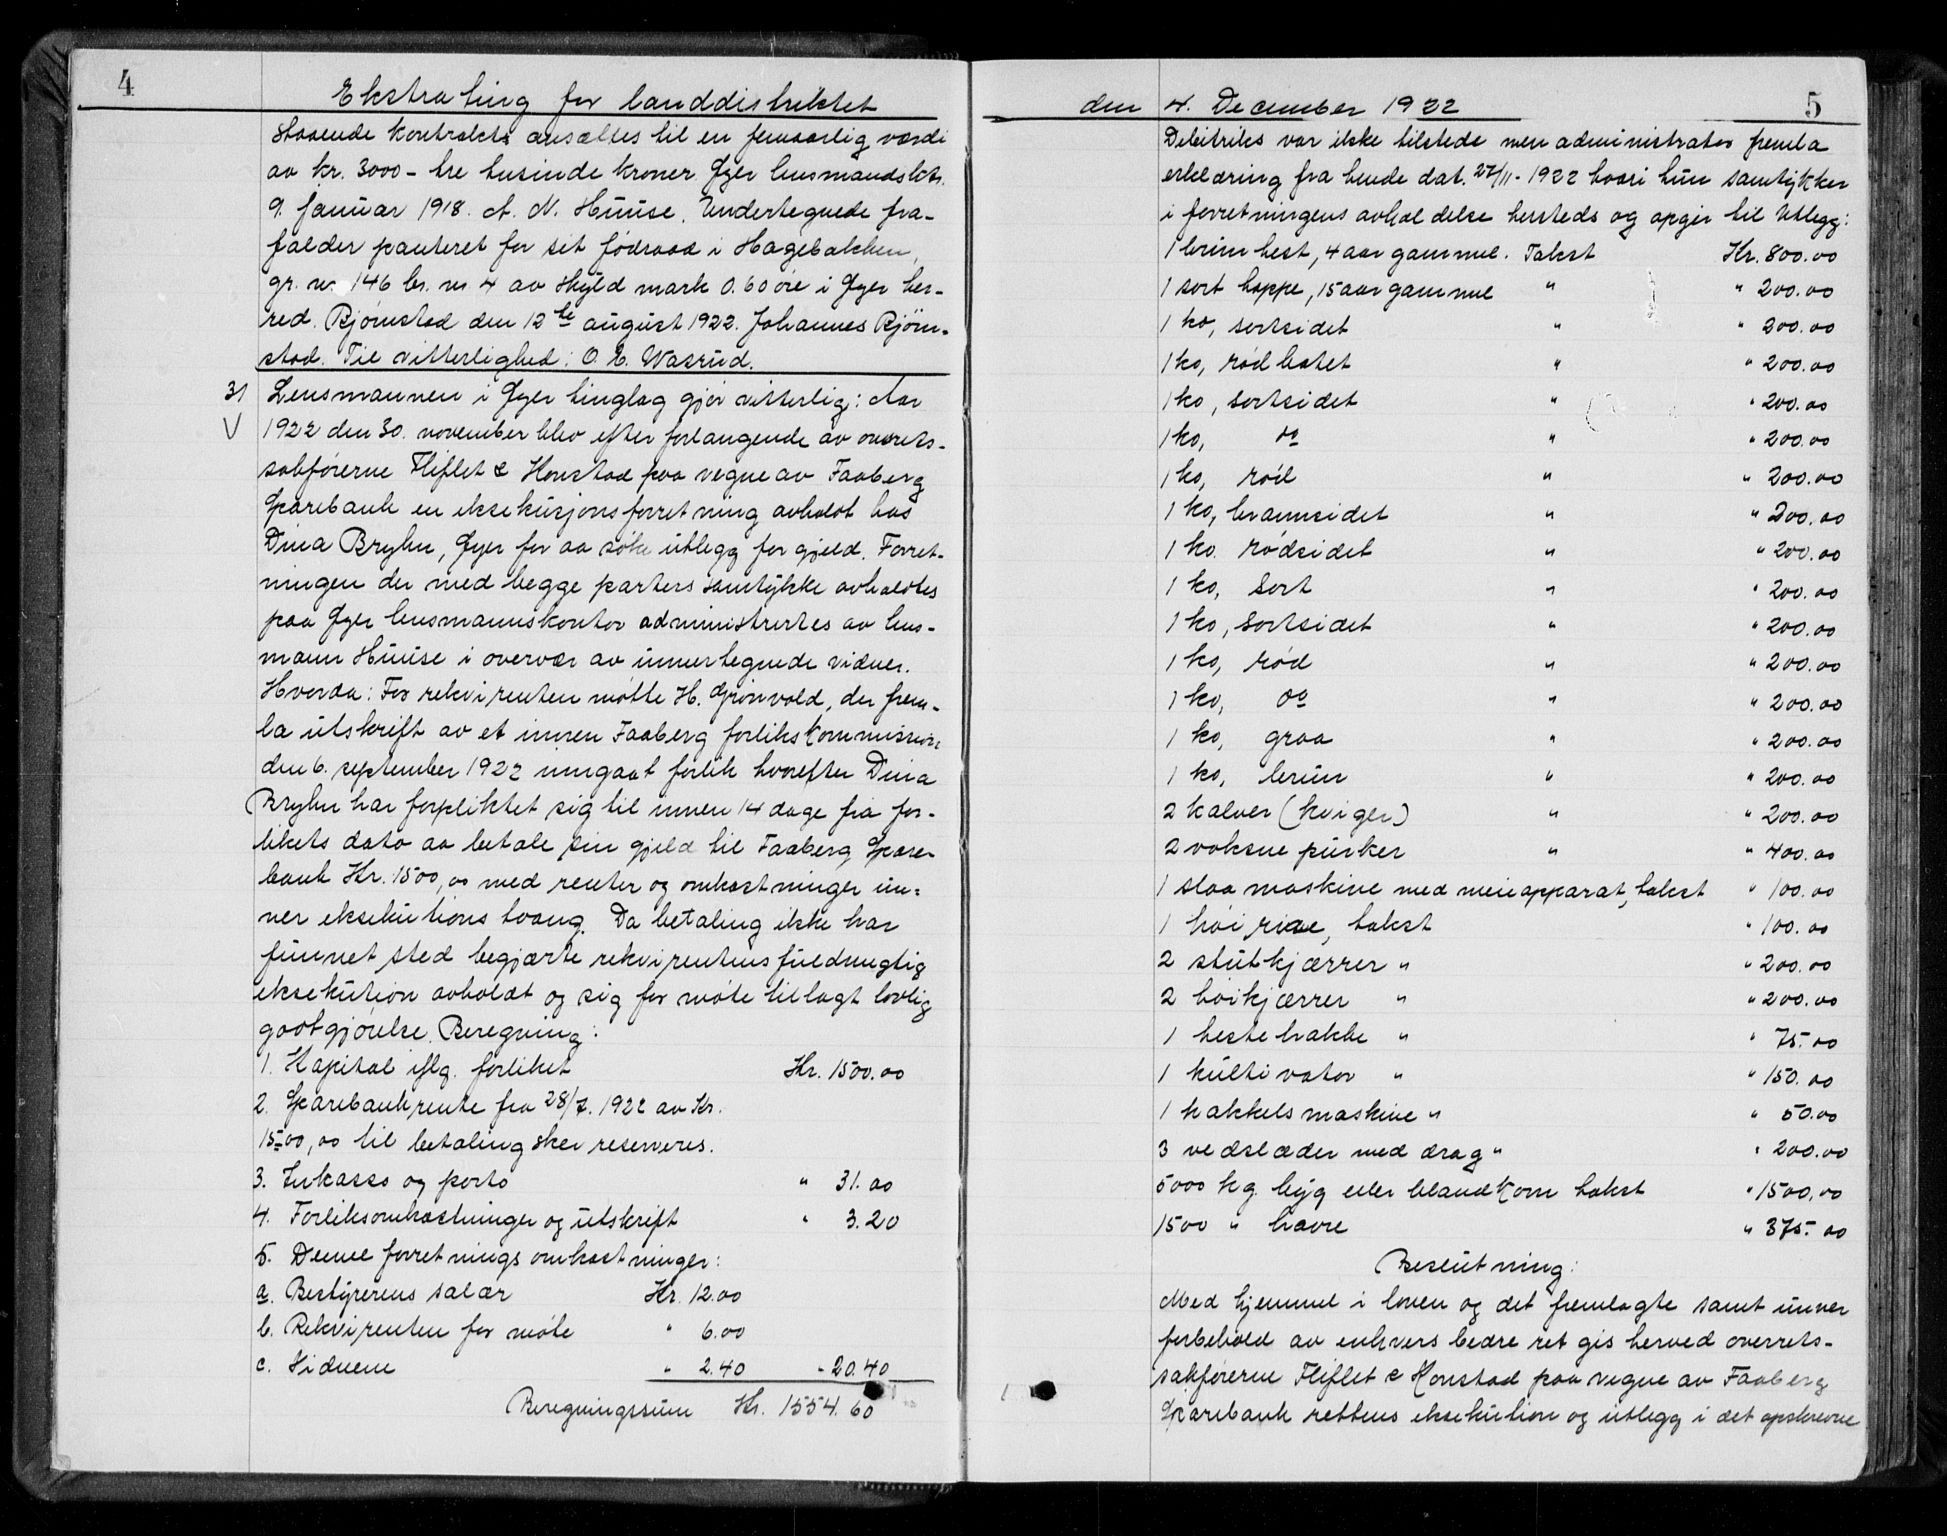 4
Ekstrating for landdistriktet
staaende kontrakts ansættes til en femaarlig værdi
av kr. 3000 - tre tusinde kroner. Øyer lensmandsktr.
9. januar 1918. A. N. Huuse. Undertegnede fra-
falder panteret for sit födraad i Hagebakken,
gr. nr. 146 br. nr 4 av skyld mark 0.60 öre i Øyer her-
red. Björnstad den 12te august 1922. Johannes Björn-
stad. Til vitterlighed: O. E. Wasrud.
31 Lensmannen i Øyer tinglag gjör vitterlig: Aar
V 1922 den 30. november blev efter forlangende av overrets-
sakförerne Fliflet & Honstad paa vegne av Faaberg
Sparebank en eksekusjonsforretning avholdt hos
Dina Bryhn, Øyer for aa söke utlegg for gjeld. Forret-
ningen der med begge parters samtykke avholdtes
paa Øyer lensmannskontor administrertes av lens-
mann Huuse i overvær av unnertegnede vidner.
Hvorda: For rekvirenten mötte H. Grönvold, der frem-
la utskrift av et innen Faaberg forlikskommission
den 6. september 1922 inngaat forlik hvorefter Dina
Bryhn har forpliktet sig til innen 14 dage fra for-
likets dato aa betale sin gjeld til Faaberg Spare-
bank Kr. 1500,00 med renter og omkostninger un-
ner eksekutions tvang. Da betaling ikke har
funnet sted begjærte rekvirentens fuldmegtig
eksekution avholdt og sig for möte tillagt lovlig
godtgjörelse. Beregning:
1. Kapital iflg. forliket Kr. 1500.00
2. Sparebankrente fra 28/7. 1922 av Kr.
1500,00 til betaling sker reserveres.
3. Inkasso og porto " 31.00
4. Forliksomkostninger og utskrift " 3.20
5. Denne forretnings omkostninger:
a. Bestyrerens salær Kr. 12.00
b. Rekvirenten for möte " 6.00
c. Vidnene " 2.40 - 20.40
Beregningssum Kr. 1554.60
den 4. December 1922
5
Debitriks var ikke tilstede men administrator fremla
erklæring fra hende dat. 27/11 - 1922 hvori hun samtykker
i forretningens avholdelse hersteds og opgir til utlegg:
1 brun hest, 4 aar gammel. Takst Kr. 800.00
1 sort hoppe, 15 aar gammel " " 200.00
1 ko, sortsidet " " 200.00
1 ko, rödkotet " " 200.00
1 ko, sortsidet " " 200.00
1 ko, do " " 200.00
1 ko, röd " " 200.00
1 ko, brannsidet " " 200.00
1 ko. rödsidet " " 200.00
1 ko, sort " " 200.00
1 ko, sortsidet " " 200.00
1 ko, röd " " 200.00
1 ko, do " " 200.00
1 ko, graa " " 200.00
1 ko, brun " " 200.00
2 kalver (kviger) " " 200.00
2 voksne purker " " 400.00
1 slaamaskine med meieapparat, takst " 100.00
1 höirive, takst " 100.00
2 stutkjærrer " " 200.00
2 höikjærrer " " 200.00
1 hestehakke " " 75.00
1 kultivator " " 150.00
1 hakkelsmaskine " " 50.00
3 vedslæder med drag " " 200.00
5000 kg. byg eller blandkorn takst " 1500,00
1500 " havre " 375.00
Beslutning:
Med hjemmel i loven og det fremlagte samt unner
forbehold av enhvers bedre ret gis herved overrets-
sakförerne Fliflet & Honstad paa vegne av Faaberg
Sparebank rettens eksekution og utlegg i det opskrevne